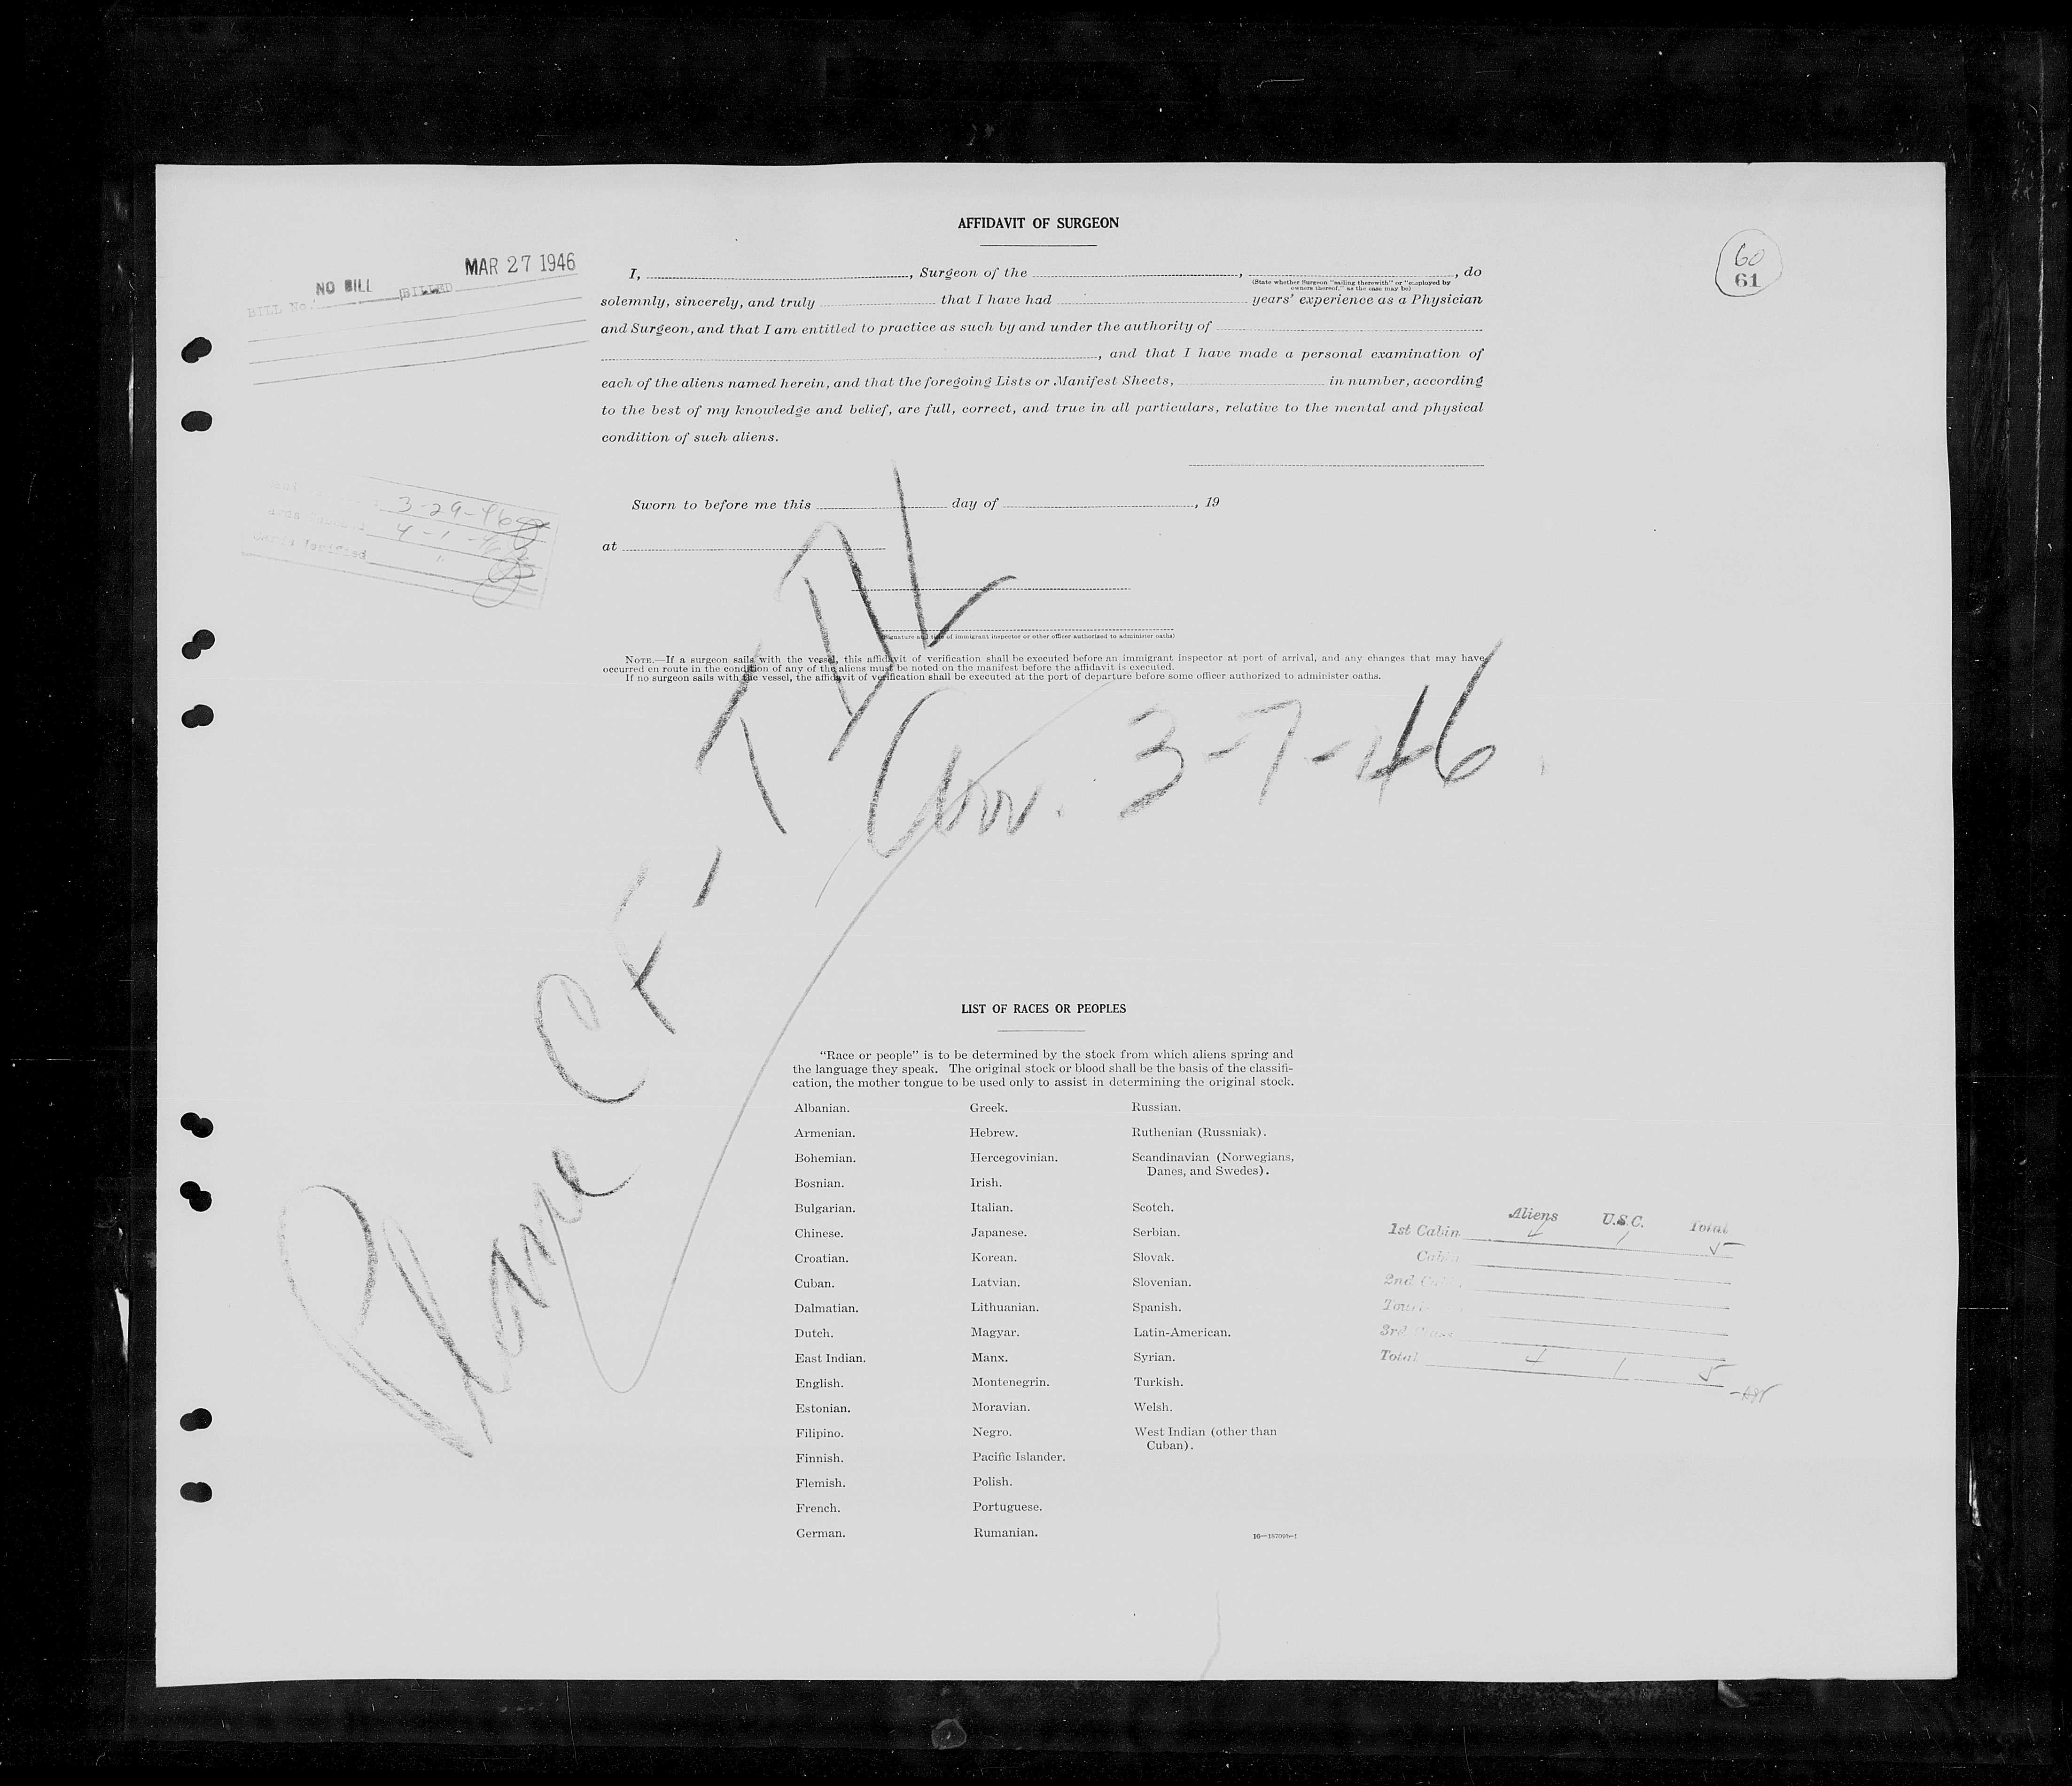 AFFIDAVIT OF SURGEON
MAR 27 1946
NO BILL BILLED
BILL No.
60
61
I, , Surgeon of the , , do
(State whether Surgeon "sailing therewith" or "employed by
owners thereof," as the case may be)
solemnly, sincerely, and truly that I have had years' experience as a Physician
and Surgeon, and that I am entitled to practice as such by and under the authority of
, and that I have made a personal examination of
each of the aliens named herein, and that the foregoing Lists or Manifest Sheets, in number, according
to the best of my knowledge and belief, are full, correct, and true in all particulars, relative to the mental and physical
condition of such aliens.
3-29-46
4-1-46
Verified "
Sworn to before me this day of , 19
at
(Signature and title of immigrant inspector or other officer authorized to administer oaths)
NOTE.—If a surgeon sails with the vessel, this affidavit of verification shall be executed before an immigrant inspector at port of arrival, and any changes that may have
occurred en route in the condition of any of the aliens must be noted on the manifest before the affidavit is executed.
If no surgeon sails with the vessel, the affidavit of verification shall be executed at the port of departure before some officer authorized to administer oaths.
Plane CF-TDL
Arr. 3-7-46
LIST OF RACES OR PEOPLES
"Race or people" is to be determined by the stock from which aliens spring and
the language they speak. The original stock or blood shall be the basis of the classifi-
cation, the mother tongue to be used only to assist in determining the original stock.
Albanian.
Armenian.
Bohemian.
Bosnian.
Bulgarian.
Chinese.
Croatian.
Cuban.
Dalmatian.
Dutch.
East Indian.
English.
Estonian.
Filipino.
Finnish.
Flemish.
French.
German.
Greek.
Hebrew.
Hercegovinian.
Irish.
Italian.
Japanese.
Korean.
Latvian.
Lithuanian.
Magyar.
Manx.
Montenegrin.
Moravian.
Negro.
Pacific Islander.
Polish.
Portuguese.
Rumanian.
Russian.
Ruthenian (Russniak).
Scandinavian (Norwegians,
Danes, and Swedes).
Scotch.
Serbian.
Slovak.
Slovenian.
Spanish.
Latin-American.
Syrian.
Turkish.
Welsh.
West Indian (other than
Cuban).
Aliens U.S.C. Total
1st Cabin 4 1 5
Cabin
2nd
3rd
Total 4 1 5